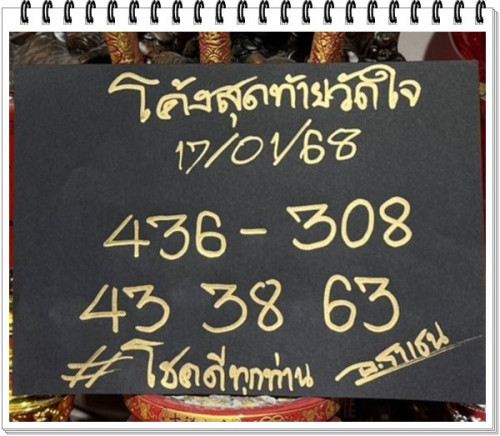 โค้งสุดท้ายวัดใจ
17/01/68
436 - 308
43 38 63
#โชคดีทุกท่าน